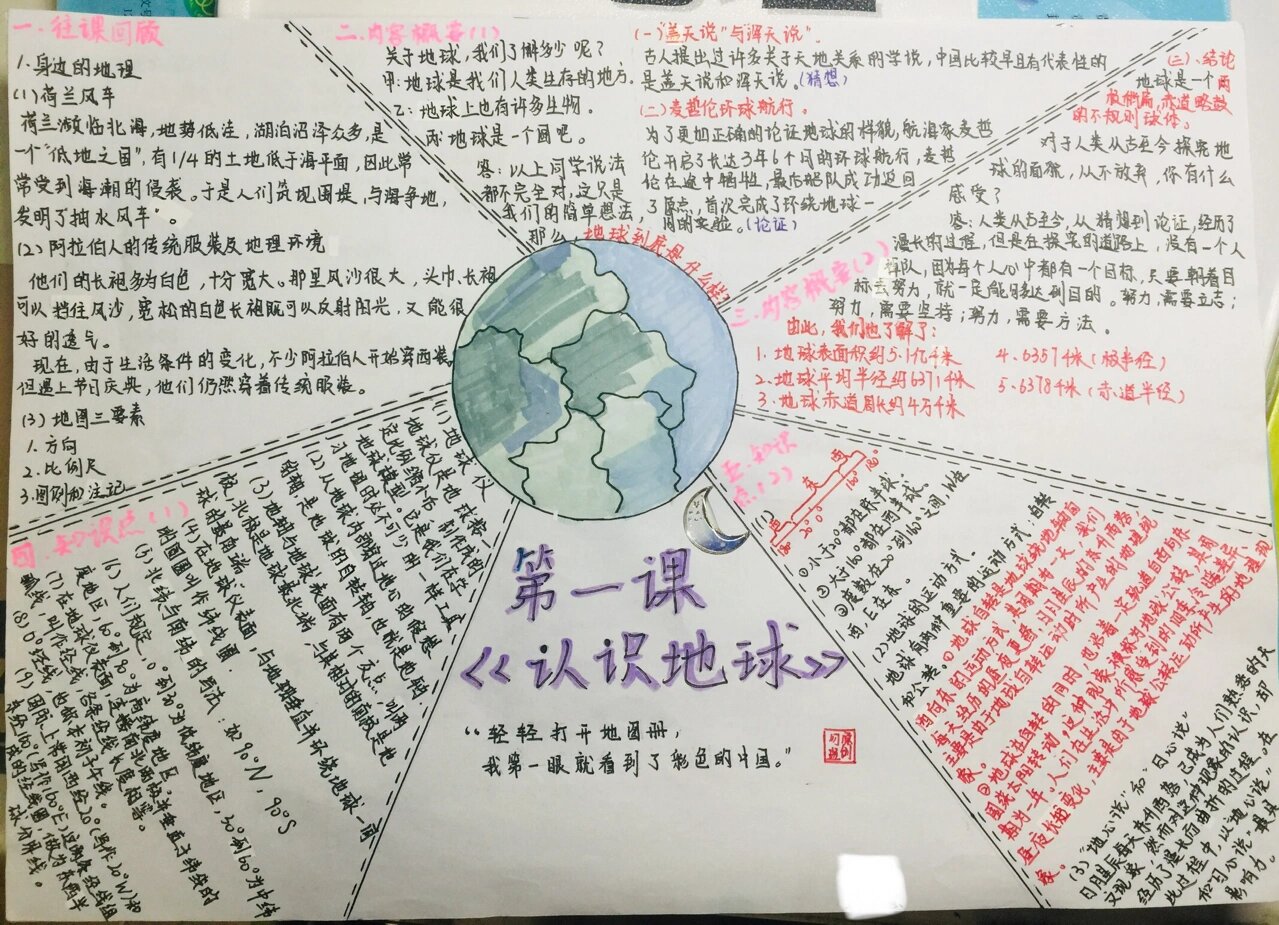 一.往课回顾
1.身边的地理
(1)荷兰风车
荷兰濒临北海,地势低洼,湖泊沼泽众多,是
一个“低地之国”,有1/4的土地低于海平面,因此常
常受到海潮的侵袭。于是人们筑坝围堤,与海争地,
发明了抽水风车”。
(2)阿拉伯人的传统服装及地理环境
他们的长袍多为白色,十分宽大。那里风沙很大,头巾、长袍
可以挡住风沙,宽松的白色长袍既可以反射阳光,又能很
好的透气。
现在,由于生活条件的变化,不少阿拉伯人开始穿西装,
但遇上节日庆典,他们仍然穿着传统服装。
(3)地图三要素
1.方向
2.比例尺
3.图例和注记
二.内容概括(1)
关于地球,我们了解多少呢?
甲:地球是我们人类生存的地方.
乙:地球上也有许多生物.
丙:地球是一个圆吧。
答:以上同学说法
都不完全对,这只是
我们的简单想法,
那么,地球到底是什么样?
(一)“盖天说”与“浑天说”.
古人提出过许多关于天地关系的学说,中国比较早且有代表性的
是盖天说和浑天说。(猜想)
(二)麦哲伦环球航行。
为了更加正确的论证地球的样貌,航海家麦哲
伦开启了长达3年6个月的环球航行,麦哲
伦在途中牺牲,最后船队成功返回
了原点,首次完成了环绕地球一
周的实验。(论证)
(三).结论
地球是一个两
极稍扁,赤道略鼓
的不规则球体。
对于人类从古至今探究地
球的面貌,从不放弃,你有什么
感受?
答:人类从古至今,从猜想到论证,经历了
漫长的过程,但是在探究的道路上,没有一个人
掉队,因为每个人心中都有一个目标,只要朝着目
标去努力,就一定能够达到目的。努力,需要立志;
努力,需要坚持;努力,需要方法。
三.内容概括(2)
由此,我们也了解了:
1.地球表面积约5.1亿千米
2.地球平均半径约6371千米
3.地球赤道周长约4万千米
4.6357千米(极半径)
5.6378千米(赤道半径)
四.知识点(1)
(1)地球仪
地球仪是地球按一
定比例缩小后制作成的
地球模型。它是我们在学
习地图时必不可少的一样工具
(2)从地球内部穿过地心的假想
的轴,是地球的自转轴,也就是地轴
(3)地轴与地球表面有两个交点,叫两
极,北极是地球最北端,与其相对的南极是地
球的最南端.
(4)在地球仪表面,与地轴垂直并环绕地球一周
的圆圈叫作纬线圈.
(5)北纬与南纬的写法:如90°N,90°S
(6)人们规定,0°到30°为低纬度地区,30°到60°为中纬
度地区,60°到90°为高纬度地区.
(7)在地球仪表面,连接南北两极,并垂直于纬线的
弧线,叫作经线,各条经线长度相等。
(8)0°经线,也被称为本初子午线。
(9)国际上常用西经20°(写作20°W)和
东经160°(写作160°E)这两条经线组
成的经线圈,做为东西半
球分界线。
五.知识
点(2)
(1)
西 东 西
180° 20° 0° 160° 180°
①小于20°都在东半球
②大于160°都在西半球.
③度数在20°到160°之间,W在
西,E在东。
(2)地球的运动方式.
地球有两种重要的运动方式:自转
和公转。①地球自转是地球绕地轴自
西向东的运动方式,其周期为一天。我们
每天经历的昼夜更替、日月星辰的东升西落,
主要是由于地球自转运动时所产生的地理现
象。
②地球在自转的同时,也沿着一定轨道自西向东
围绕太阳转动,这种现象被称为地球公转,其周
期为一年。人们在生活中所感受到的四季冷暖差异、
昼夜长短变化,主要是由于地球公转运动所产生的地理现
象。
(3)“地心说”和“日心说”
日月星辰每天东升西落,已成为人们熟悉的天
文现象,然而对这种现象的认识,却
经历了漫长而曲折的过程。在
此过程中,以“地心说”
和“日心说”最具
影响力”
第一课
《认识地球》
“轻轻打开地图册,
我第一眼就看到了彩色的中国。”